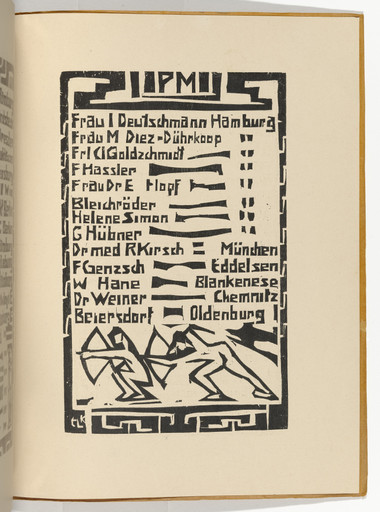 PM
Frau I Deutschmann Hamburg
Frau M Diez-Dührkoop " "
Frl Cl Goldzchmidt " "
F Hassler " "
Frau Dr E Hopf " "
Bleichröder " "
Helene Simon " "
G Hübner " "
Dr med R Kirsch = München
F Genzsch Eddelsen
W Hane Blankenese
Dr Weiner Chemnitz
Beiersdorf Oldenburg I